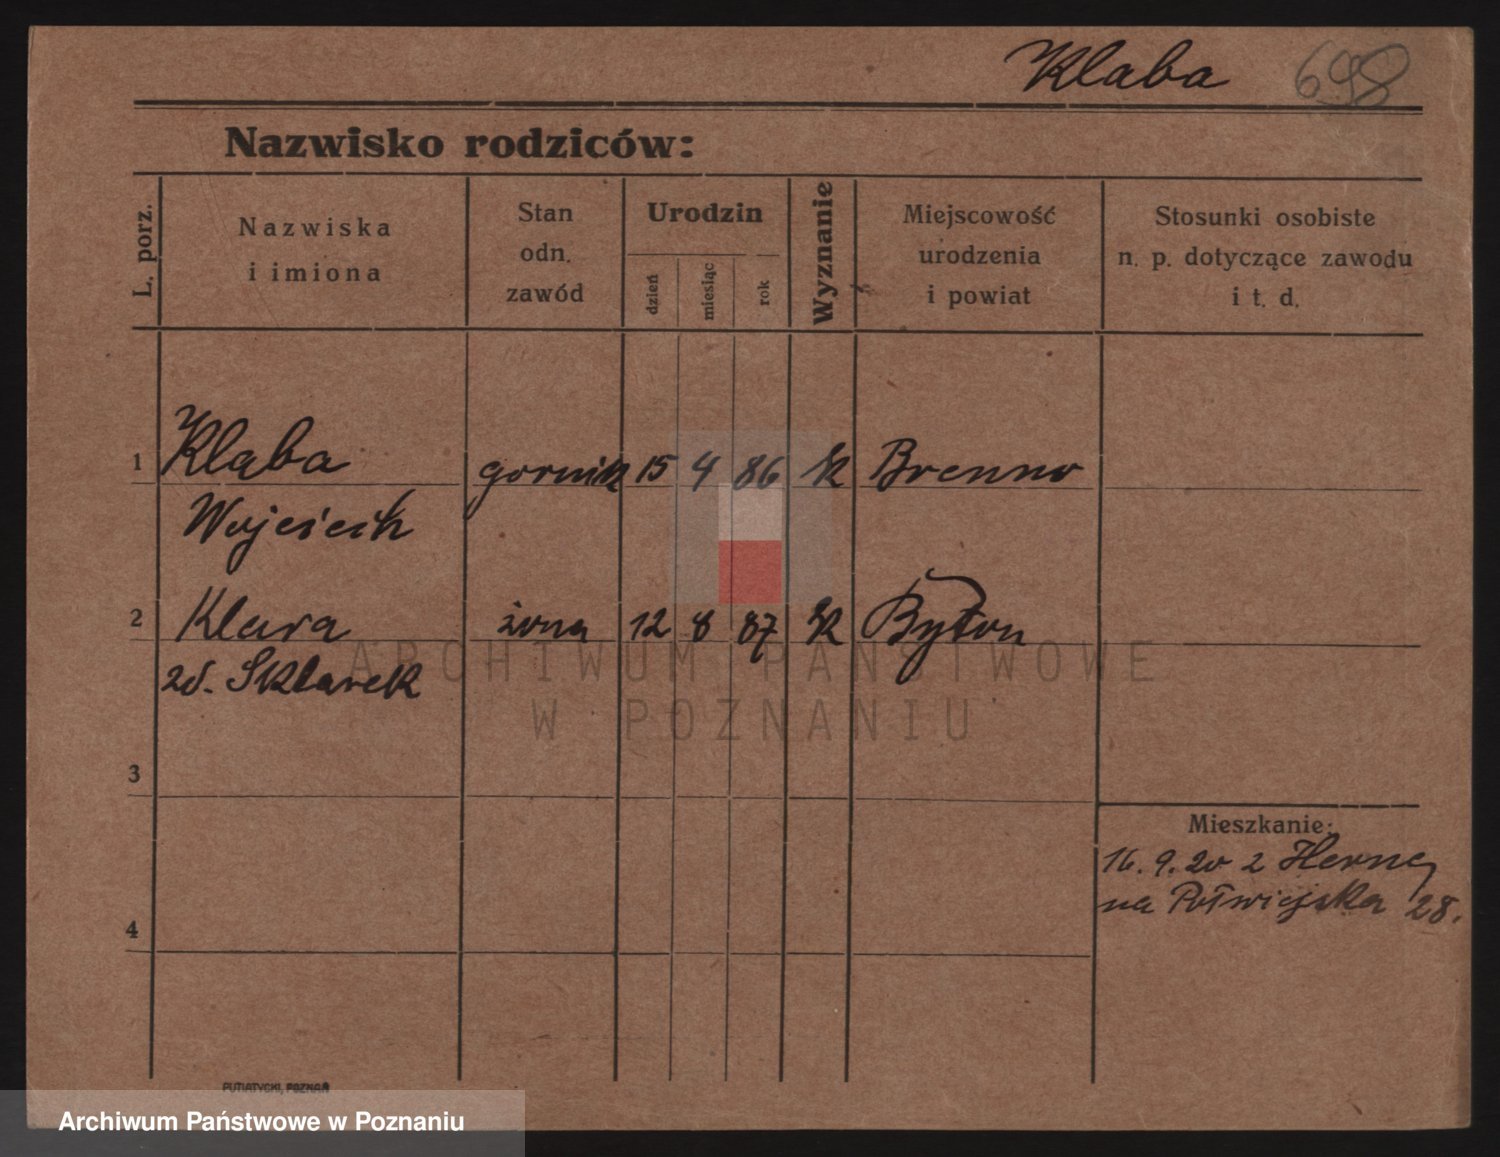 Klaba 698
Nazwisko rodziców:
L. porz.
Nazwiska
i imiona
Stan
odn.
zawód
Urodzin
dzień
miesiąc
rok
Wyznanie
Miejscowość
urodzenia
i powiat
Stosunki osobiste
n. p. dotyczące zawodu
i t. d.
1 Klaba gornik 15 4 86 k Brenno
Wojciech
2 Klara żona 12 8 87 k Byton
zd. Sklarek
ARCHIWUM PAŃSTWOWE
W POZNANIU
3
Mieszkanie:
16. 9. 20 z Herne,
na Półwiejska 28.
4
PUTIATYCKI, POZNAŃ
Archiwum Państwowe w Poznaniu